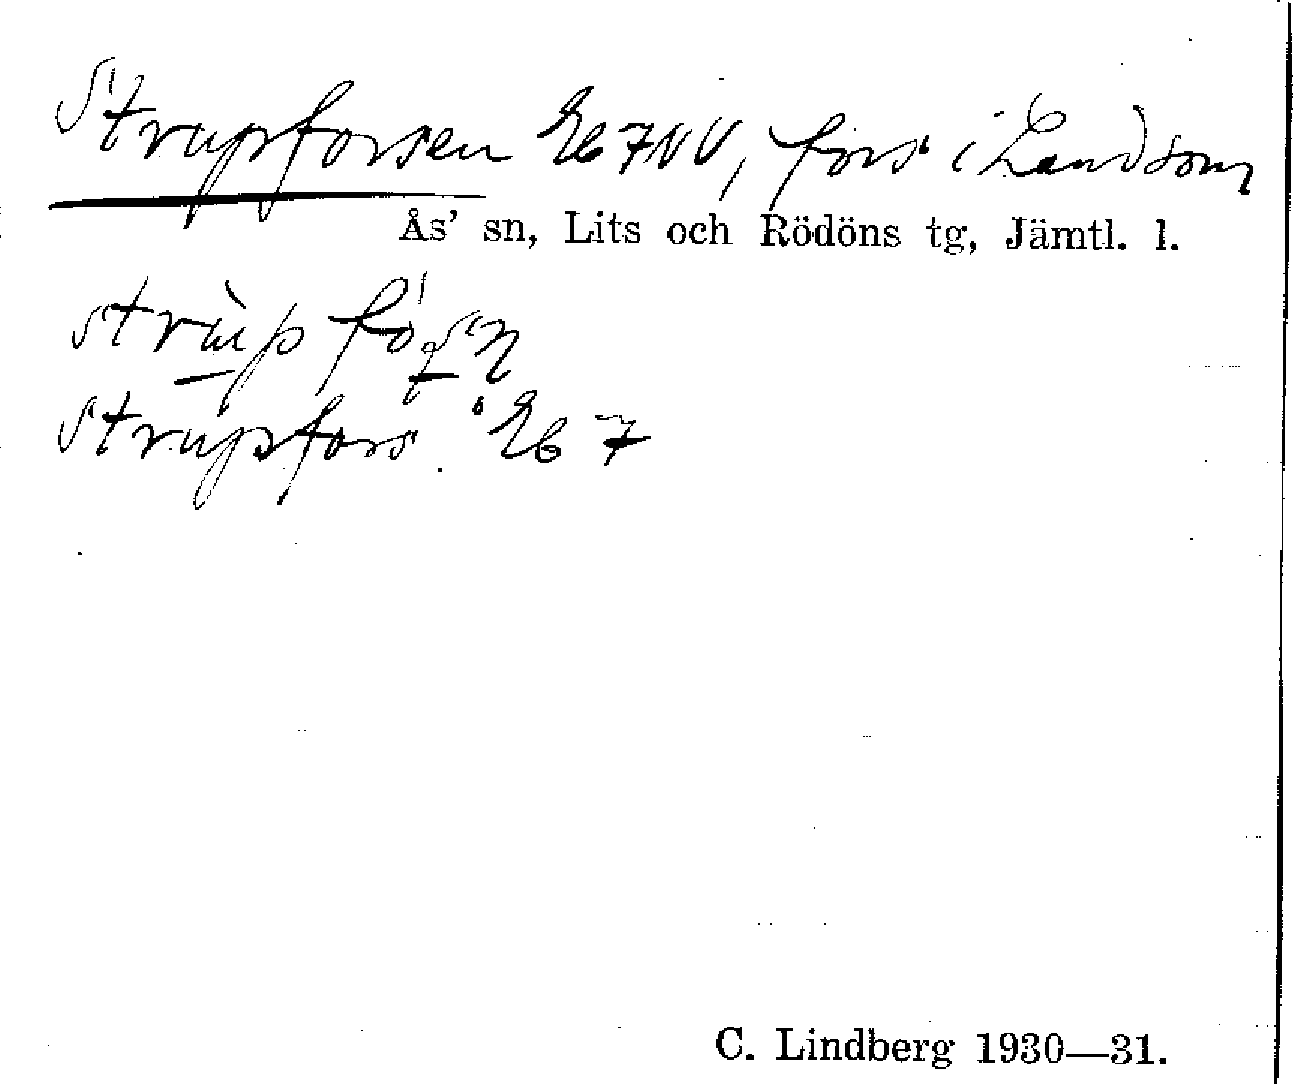 Strupforsen Eb 7 NV, fors i Landsom
Ås' sn, Lits och Rödöns tg, Jämtl. l.
strùp
Strupfors Eb 7
C. Lindberg 1930—31.